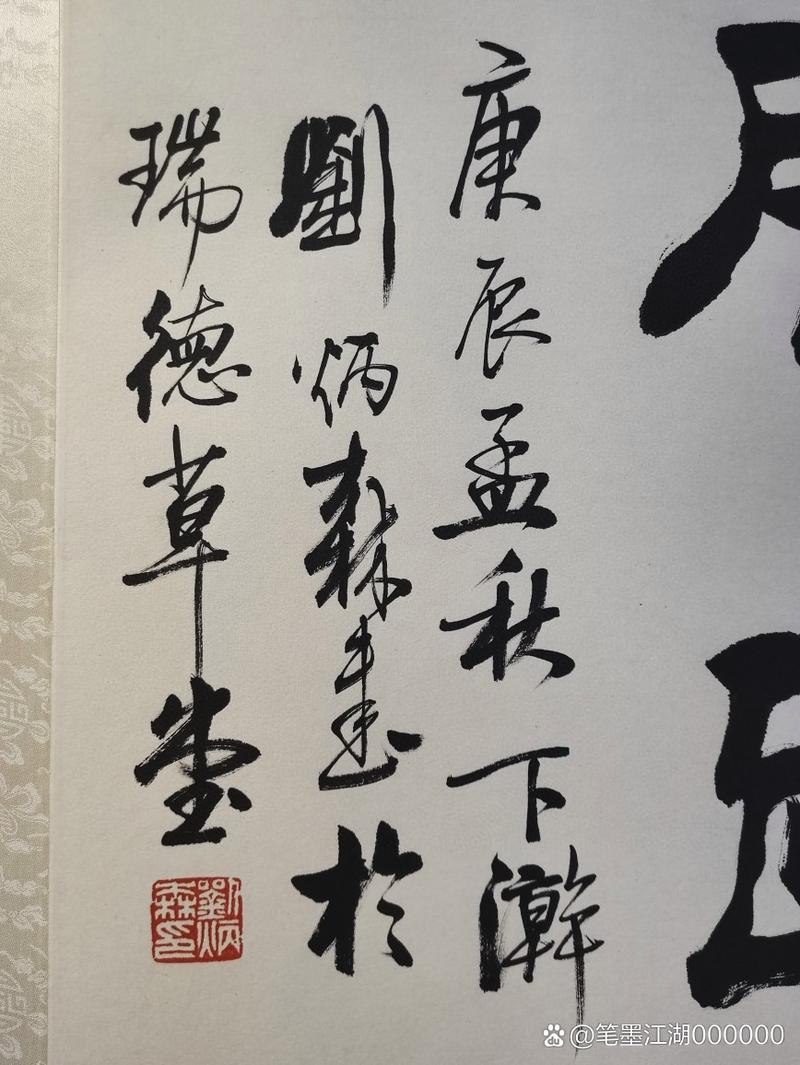 庚辰孟秋下澣
劉炳森書於
瑞德草堂
劉炳森印
@笔墨江湖000000